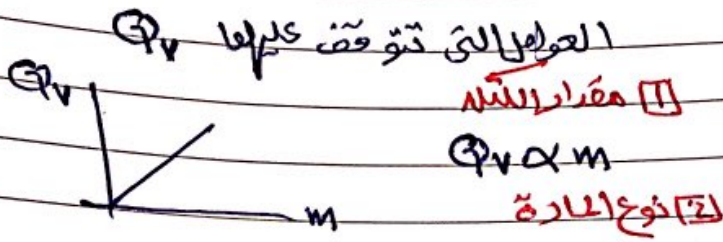 العوامل التي تتوقف عليها Qv
[1] مقدار الكتلة
Qv ∝ m
Qv
m
[2] نوع المادة